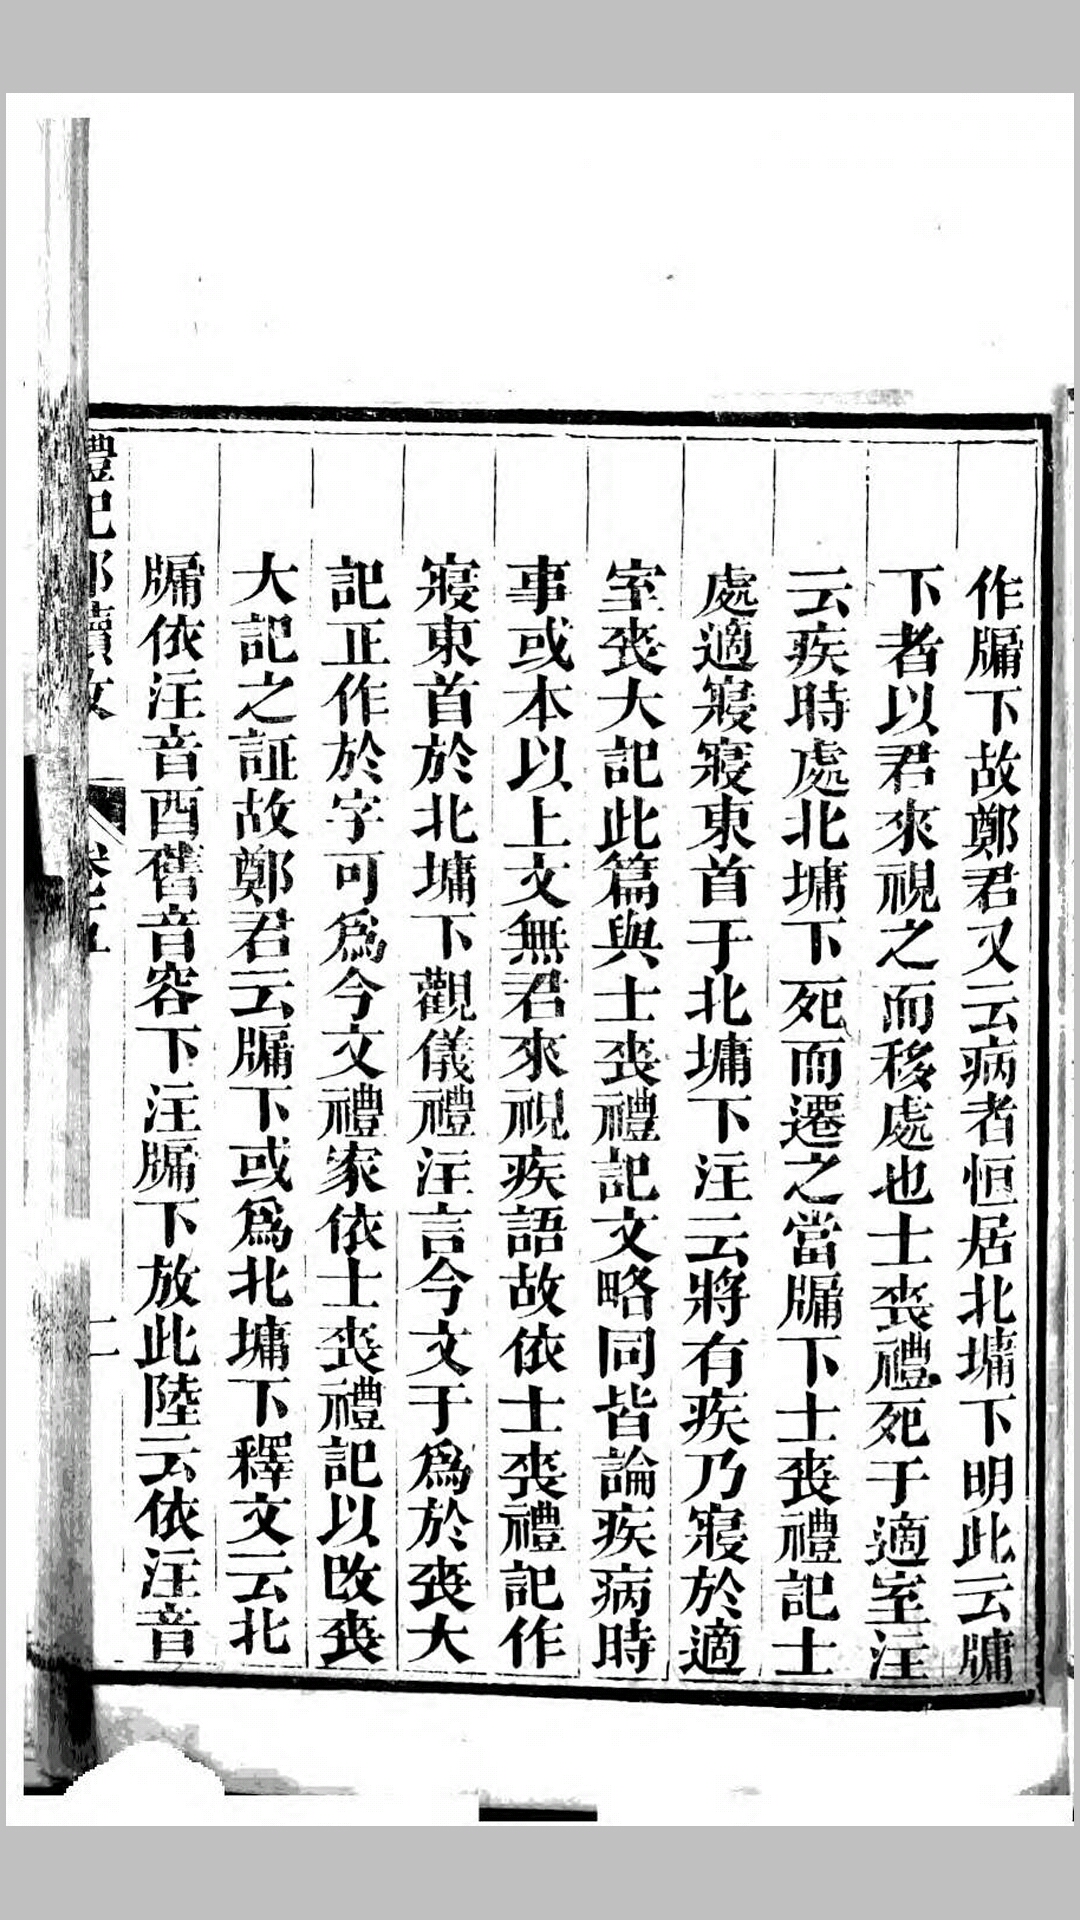 作牖下故鄭君又云病者恒居北墉下明此云牖
下者以君來視之而移處也士喪禮死于適室注
云疾時處北墉下死而遷之當牖下士喪禮記士
處適寢寢東首于北墉下注云將有疾乃寢於適
室喪大記此篇與士喪禮記文略同皆論疾病時
事或本以上文無君來視疾語故依士喪禮記作
寢東首於北墉下觀儀禮注言今文于為於喪大
記正作於字可為今文禮家依士喪禮記以改喪
大記之証故鄭君云牖下或為北墉下釋文云北
牖依注音酉舊音容下注牖下放此陸云依注音
禮記鄭讀攷
卷五
二